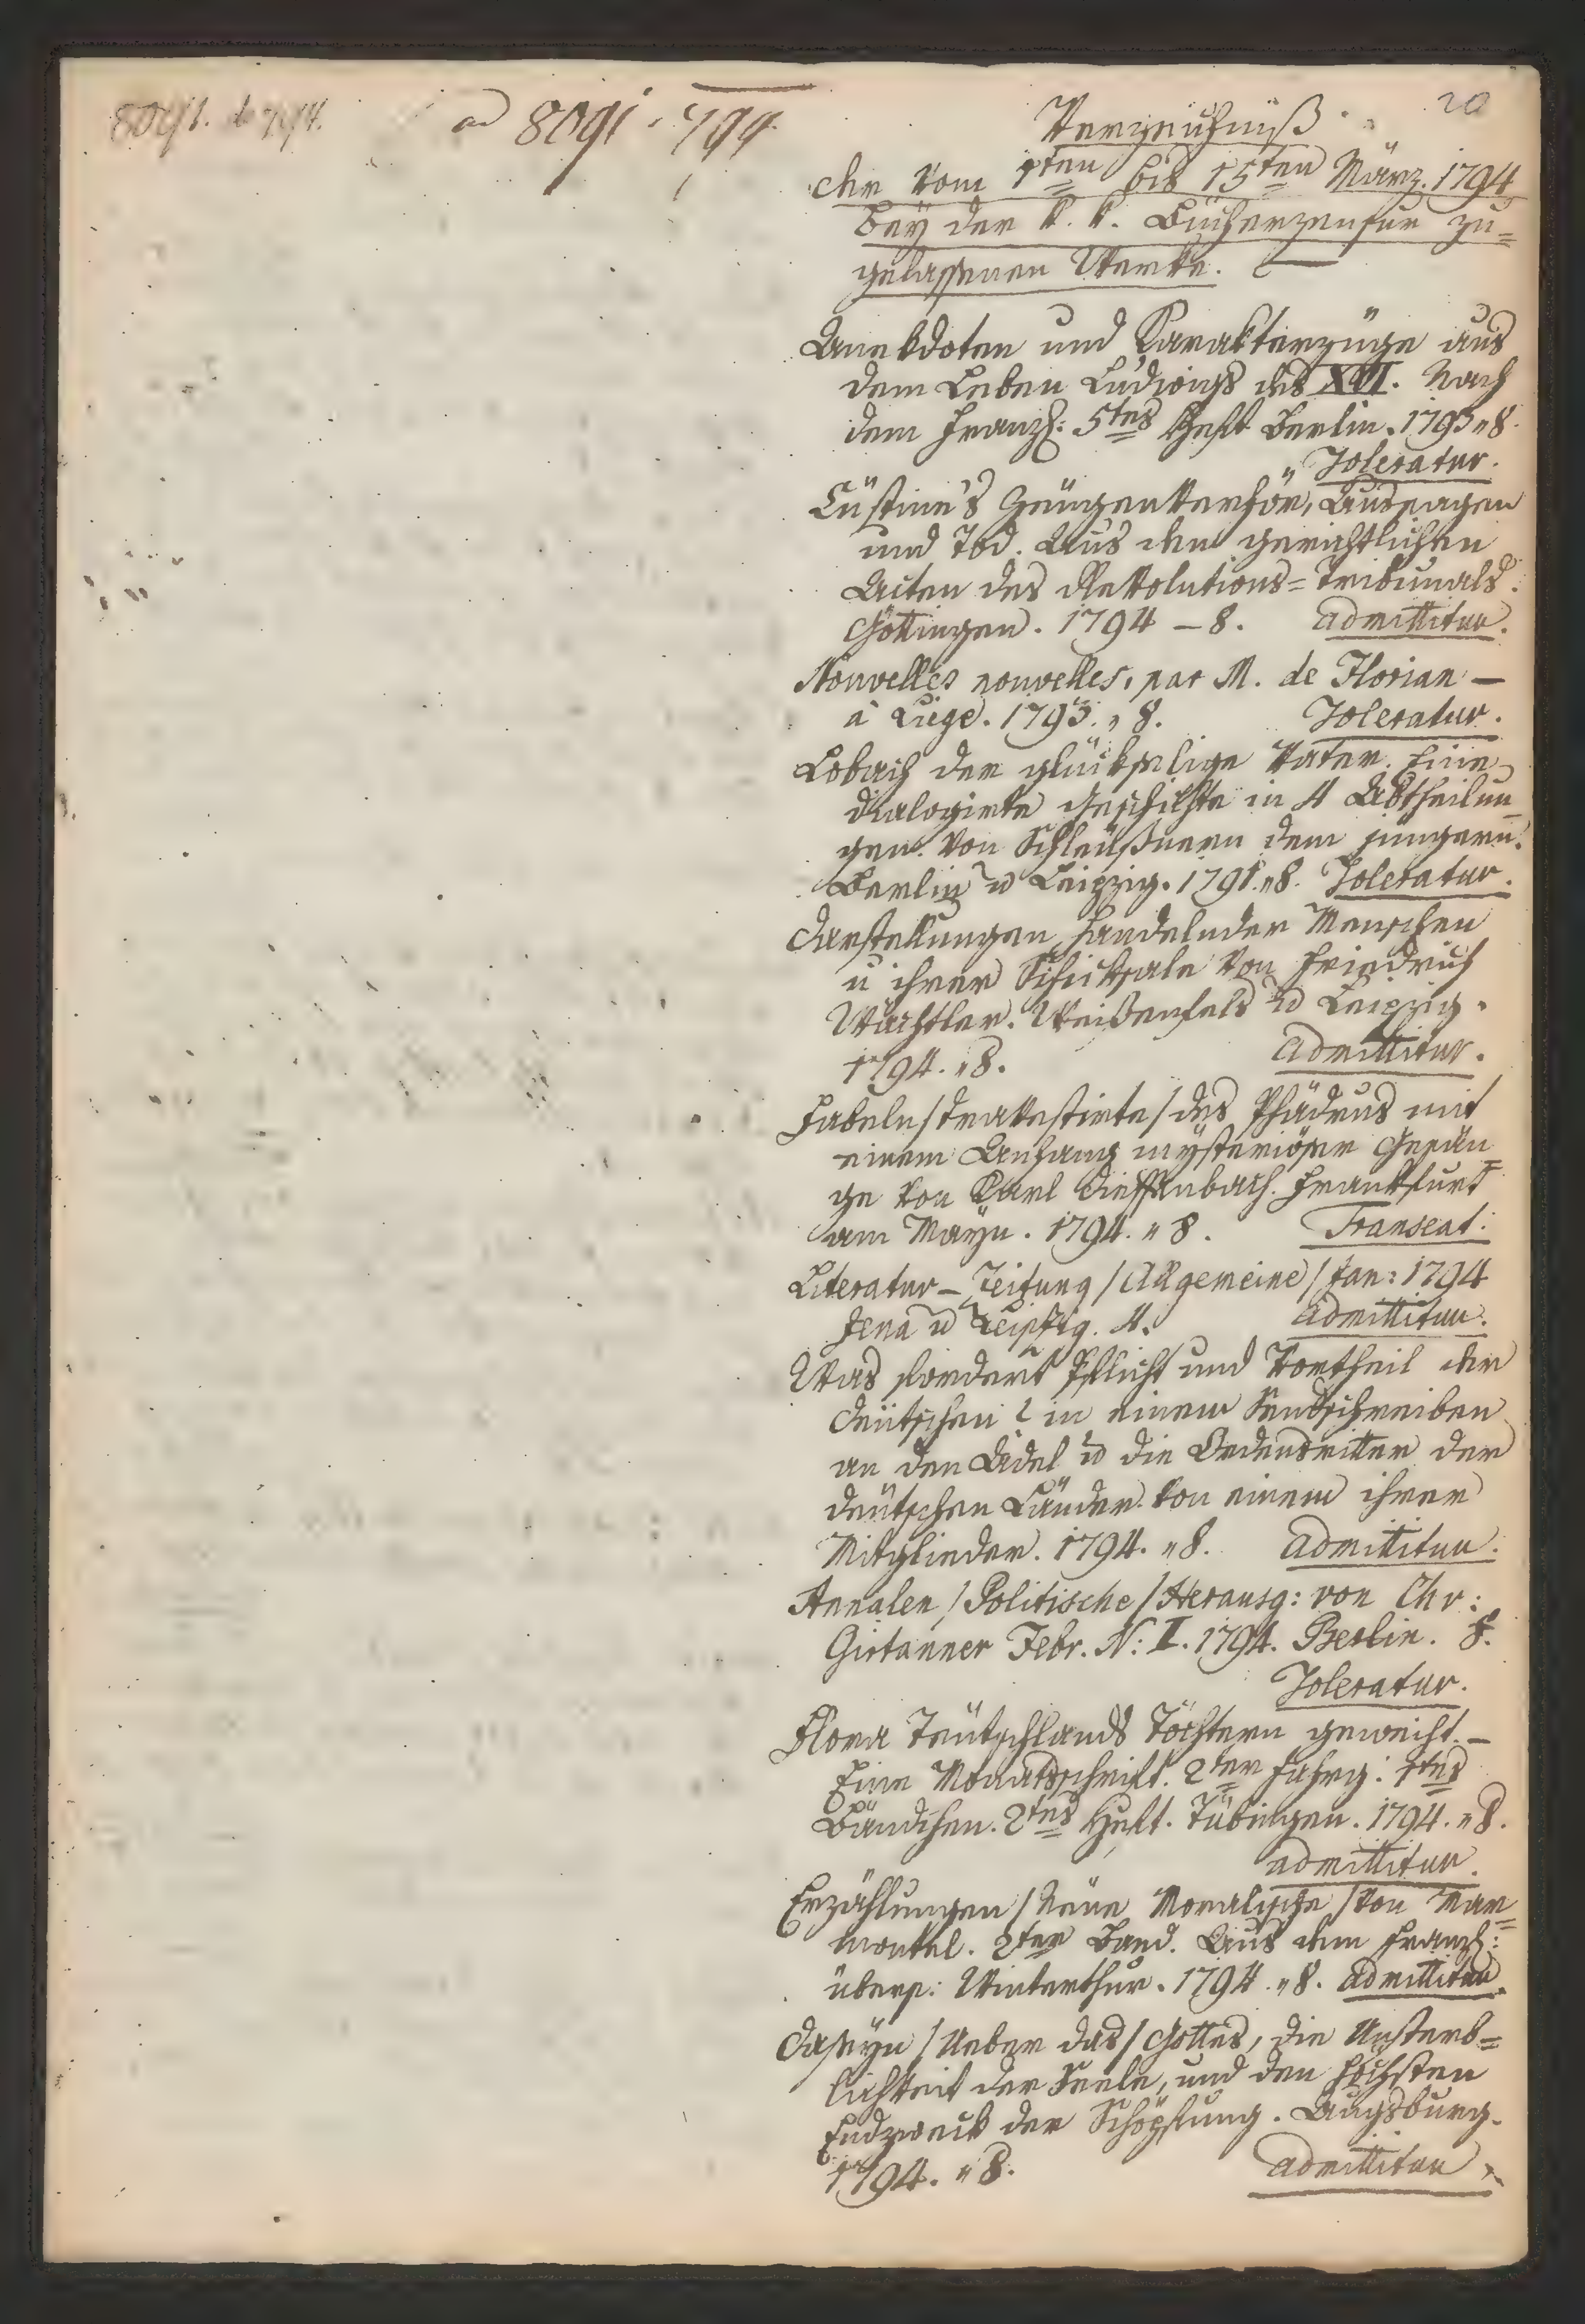 ad 8091 · 794
20
Verzeichniß
der vom 1ten bis 15ten März. 1794
bey der k. k. Bücherzensur zu=
gelassenen Werke.
Anekdoten und Karakterzüge aus
dem Leben Ludwigs des XVI. Nach
dem Franz: 5tes Heft Berlin. 1793 „ 8.
Toleratur.
Cüstine's Zeugenverhör, Aussagen
und Tod. Aus den gerichtlichen
Acten des Revolutions=Tribunals.
Göttingen. 1794 – 8. admittitur.
Nouvelles nouvelles, par M. de Florian –
à Liége. 1793. „ 8. Toleratur.
Lobach der glückselige Vater. Eine
dialogirte Geschichte in 4 Abtheilun=
gen. Von Schleußnern dem jüngern.
Berlin u Leipzig. 1791. „ 8. Toleratur.
Darstellungen handelnder Menschen
u ihrer Schicksale von Friedrich
Wächtler. Weißenfels u Leipzig.
1794. „ 8. Admittitur.
Fabeln / travestirte / des Phädrus mit
einem Anhang mysteriöser Gesän=
ge von Karl Dieffenbach. Frankfurt
am Mayn. 1794. „ 8. Transeat.
Literatur – Zeitung / Allgemeine / Jan: 1794
Jena u Leipzig. 4. admittitur.
Was fordert Pflicht und Vortheil der
Deütschen? in einem Sendschreiben
an den Adel u die Ordensritter der
deütschen Länder. Von einem ihrer
Mitglieder. 1794. „ 8. Admittitur.
Annalen / Politische / Herausg: von Chr:
Girtanner Febr. N: II. 1794. Berlin. 8.
Toleratur.
Flora Teütschlands Töchtern geweiht. –
Eine Monatsschrift. 2ter Jahrg: 1tes
Bändchen. 2tes Heft. Tübingen. 1794. „ 8.
admittitur.
Erzählungen / Neüe Moralische / von Mar=
montel. 2ter Band. Aus dem Franz:
übers: Winterthur. 1794. „ 8. admittitur.
Daseyn / Ueber das / Gottes, die Unsterb=
lichkeit der Seele, und den höchsten
Endzweck der Schöpfung. Augsburg.
1794. „ 8. admittitur.